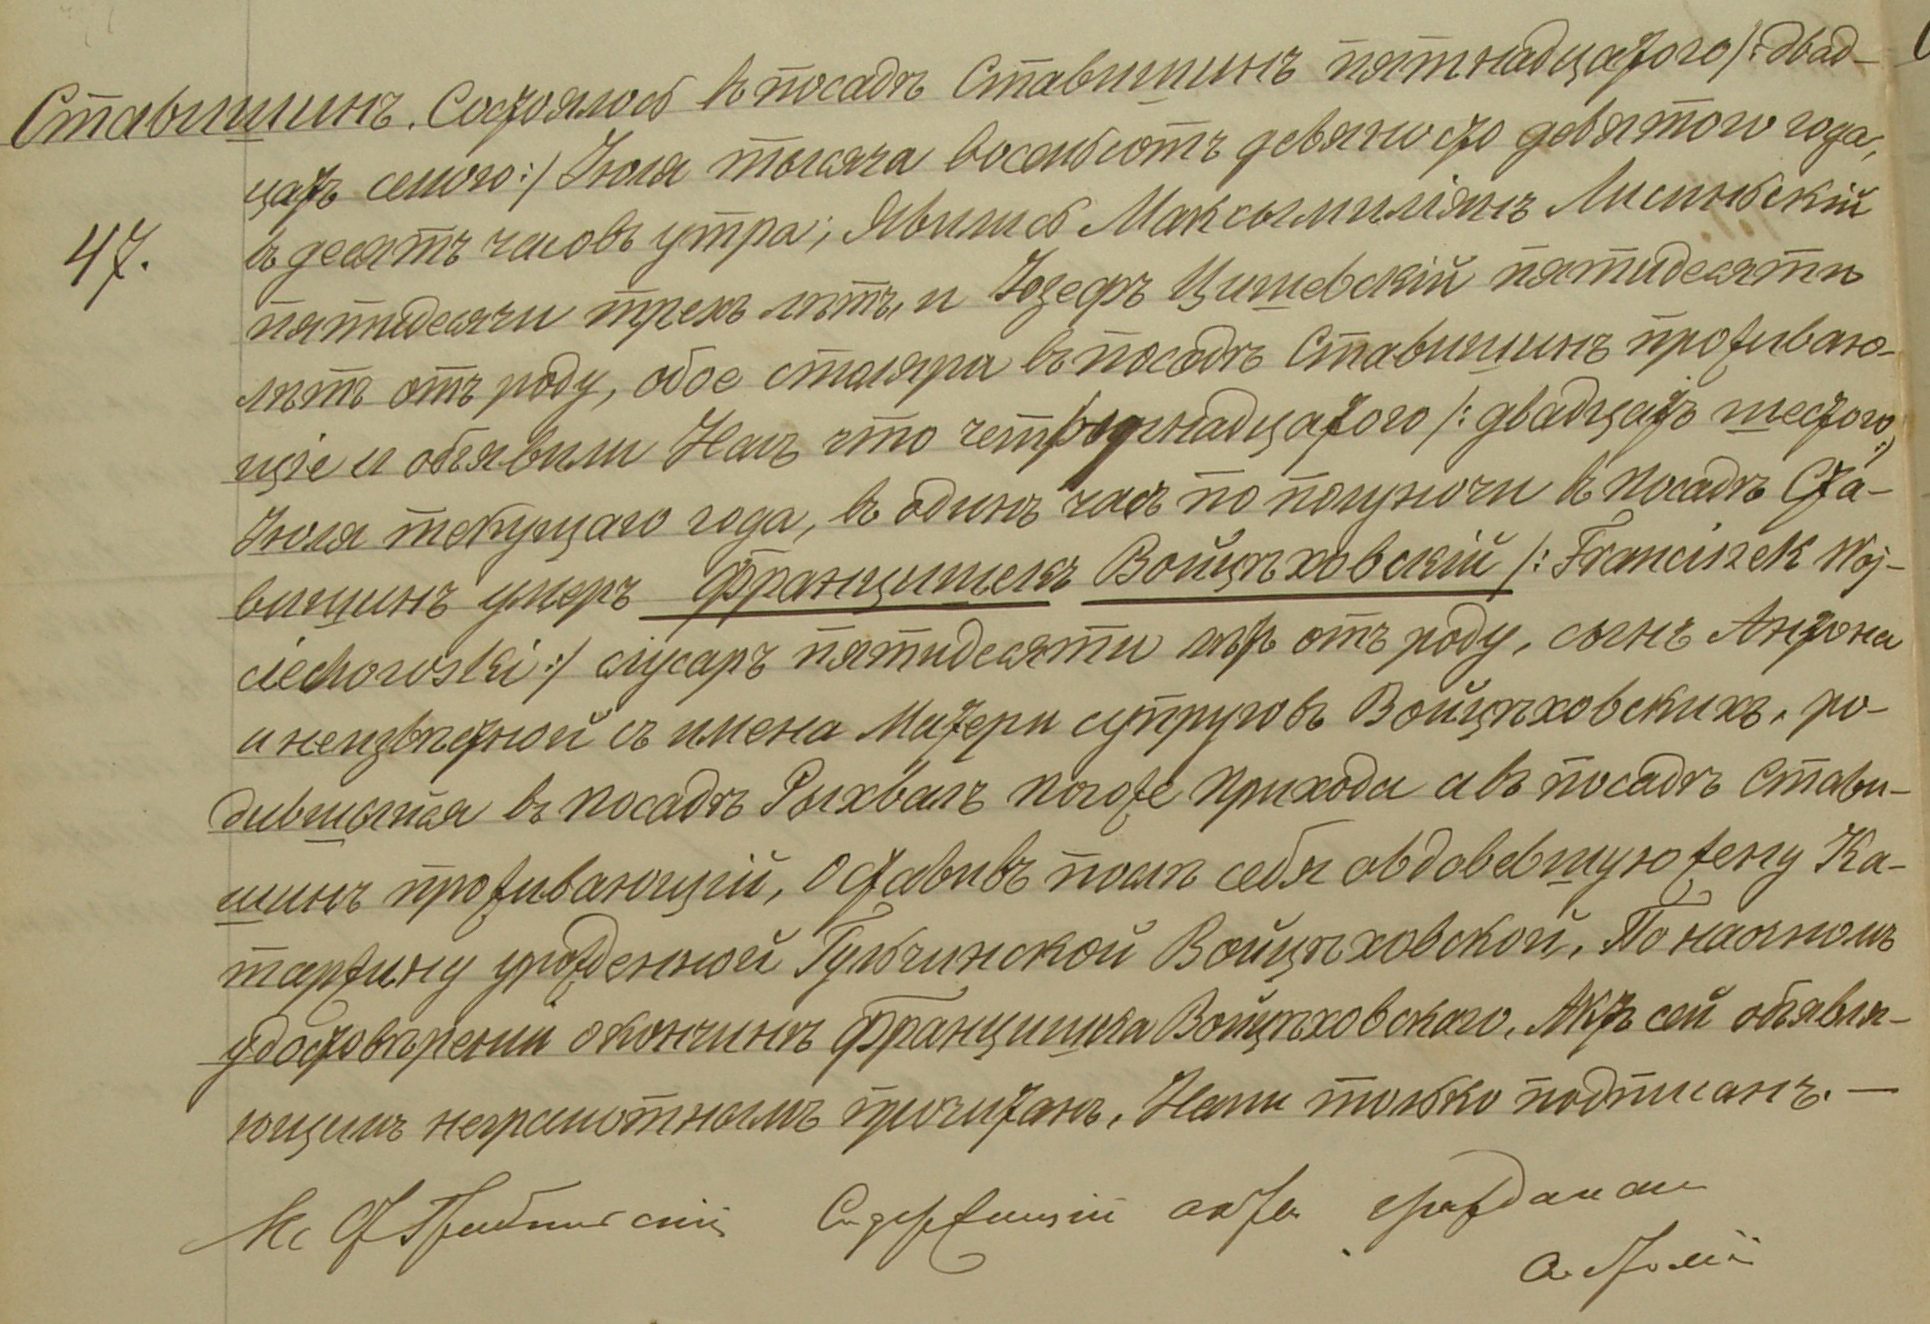 Ставишинъ. Состоялось въ посадѣ Ставишинъ пятнадцатого /: двад-
цать семого :/ Іюля тысяча восемьсотъ девяносто девятого года,
47.
въ десять часовъ утра; Явились Максымиліянъ Лисиньскій
пятидесяти трехъ лѣтъ, и Юзефъ Цишевскій пятидесяти
лѣтъ отъ роду, обое столяра въ посадѣ Ставишинъ проживаю-
щіе и объявили Намъ что четырнадцатого /: двадцать шестого :/
Іюля текущаго года, въ одинъ часъ по полуночи въ посадѣ Ста-
вишинъ умеръ Францишекъ Войцѣховскій /: Franciszek Woj-
ciechowski :/ слусаръ пятидесяти лѣтъ отъ роду, сынъ Антона
и неизвѣстной съ имена Матери супруговъ Войцѣховскихъ, ро-
дившыйся въ посадѣ Рыхвалъ тогоже прихода а въ посадѣ Стави-
шинъ проживающій, Оставивъ послѣ себя овдовевшую жену Ка-
таржину урожденной Гульчинской Войцѣховской, По наочномъ
удостовѣреніи окончинѣ Францишка Войцѣховского, Актъ сей объявля-
ющимъ неграмотнымъ прочитанъ, Нами только подписанъ. —
Кс Содержащій акта гражданаи